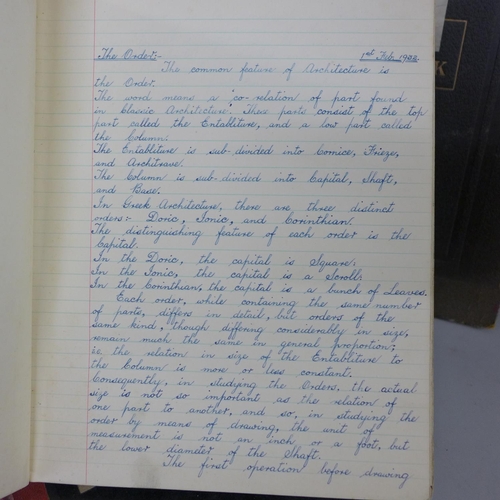 The Order:- 1st Feb. 1922.
The common feature of Architecture is
the Order.
The word means a 'co-relation of part found
in Classic Architecture'. These parts consist of the top
part called the Entabliture, and a low part called
the Column.
The Entabliture is sub-divided into Cornice, Frieze,
and Architrave.
The Column is sub-divided into Capital, Shaft,
and Base.
In Greek Architecture, there are three distinct
orders:- Doric, Ionic, and Corinthian.
The distinguishing feature of each order is the
Capital.
In the Doric, the capital is Square.
In the Ionic, the capital is a Scroll.
In the Corinthian, the capital is a bunch of Leaves.
Each order, while containing the same number
of parts, differs in detail, but orders of the
same kind, though differing considerably in size,
remain much the same in general proportion;
ie. the relation in size of the Entabliture to
the Column is more or less constant.
Consequently, in studying the Orders, the actual
size is not so important as the relation of
one part to another, and so, in studying the
order by means of drawing, the unit of
measurement is not an inch or a foot, but
the lower diameter of the Shaft.
The first operation before drawing
K